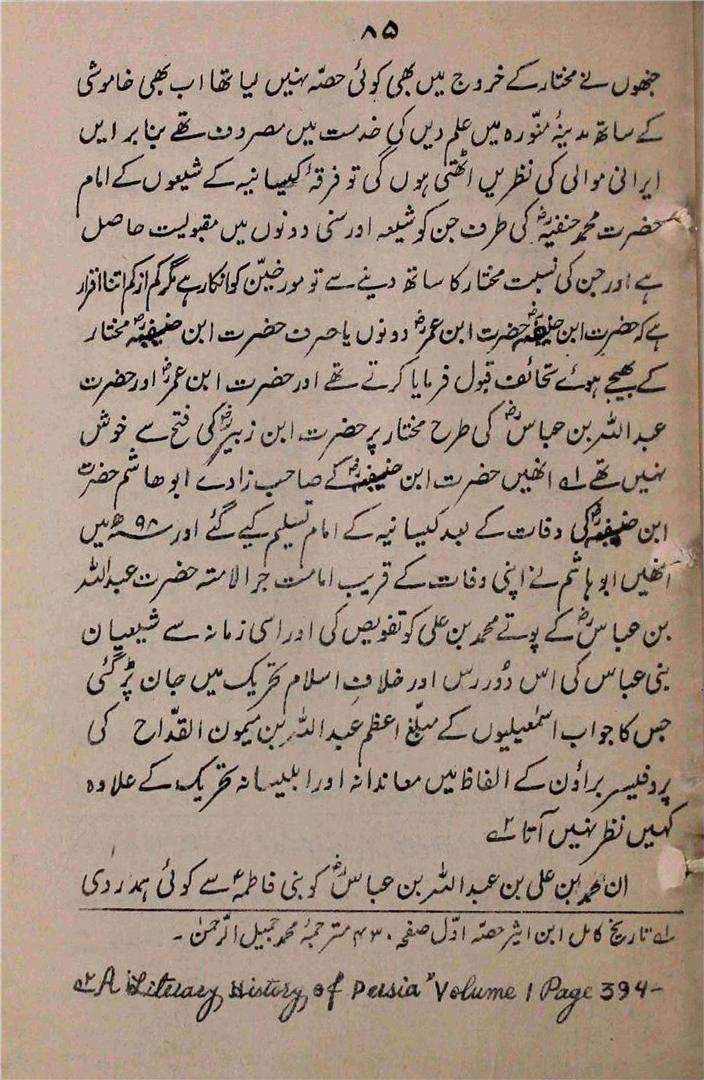 ۸۵
جنھوں نے مختار کے خروج میں بھی کوئی حصّہ نہیں لیا تھا اب بھی خاموشی
کے ساتھ مدینۂ منّورہ میں علم دیں کی خدمت میں مصروف تھے بنا بر ایں
ایرانی موالی کی نظریں اٹھتی ہوں گی تو فرقۂ کیسانیہ کے شیعوں کے امام
حضرت محمد حنفیہؓ کی طرف جن کو شیعہ اور سنی دونوں میں مقبولیت حاصل
ہے اور جن کی نسبت مختار کا ساتھ دینے سے تو مورخیّن کو انکار ہے مگر کم از کم اتنا اقرار
ہے کہ حضرت ابن حنیفہؓ حضرت ابن عمرؓ دونوں یا صرف حضرت ابن حنیفہؓ مختار
کے بھیجے ہوئے تحائف قبول فرمایا کرتے تھے اور حضرت ابن عمرؓ اور حضرت
عبداللہ بن عباسؓ کی طرح مختار پر حضرت ابن زبیرؓ کی فتح سے خوش
نہیں تھے ۱؎ انھیں حضرت ابن حنیفہؓ کے صاحب زادے ابو ہاشم حضرت
ابن حنیفہؓ کی وفات کے بعد کیسانیہ کے امام تسلیم کیے گئے اور ۹۸ھ میں
انھیں ابو ہاشم نے اپنی وفات کے قریب امامت جر الامتہ حضرت عبداللہ
بن عباسؓ کے پوتے محمد بن علی کو تفویض کی اور اسی زمانہ سے شیعیان
بنی عباس کی اس دُور رس اور خلافِ اسلام تحریک میں جان پڑ گئی
جس کا جواب اسمٰعیلیوں کے مبلّغ اعظم عبداللہ بن میمون القدّاح کی
پروفیسر براؤن کے الفاظ میں معاندانہ اور ابلیسانہ تحریک کے علاوہ
کہیں نظر نہیں آتا ۲؎
ان محمد بن علی بن عبداللہ بن عباسؓ کو بنی فاطمہؑ سے کوئی ہمدردی
۱؎ تاریخ کامل ابن اثیر حصّہ اوّل صفحہ ۴۳۰ مترجمۂ محمد جمیل الرّحمٰن ۔
۲؎ A "Literary History of Persia" Volume 1 Page 394-